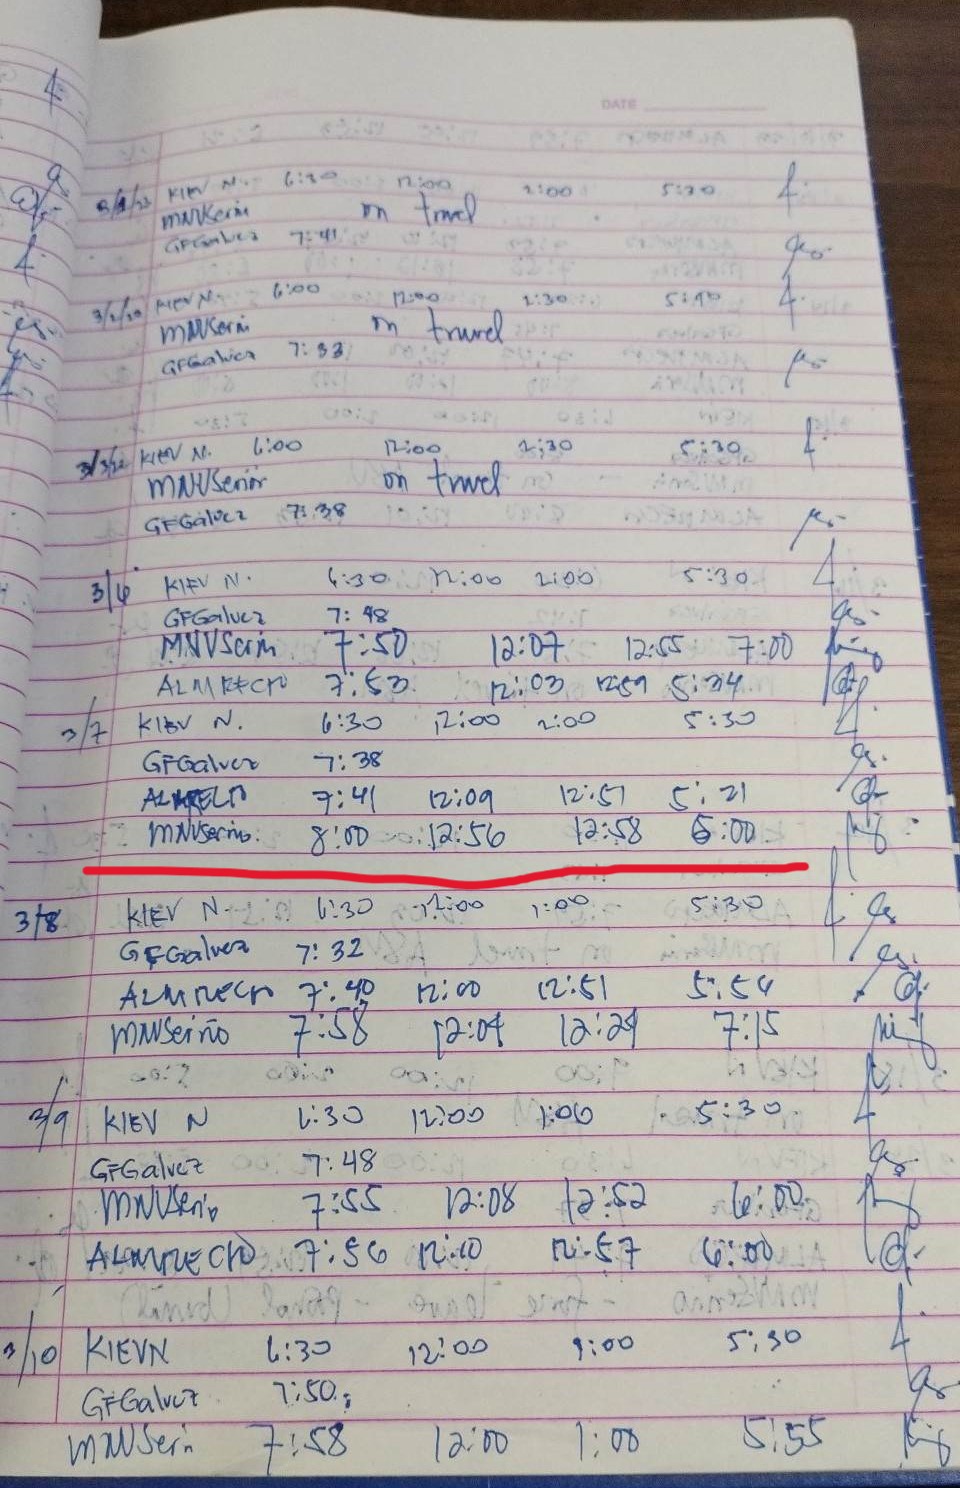 DATE
KIEV N. 6:30 12:00 1:00 5:30
MNVSerin on travel
GFGalvez 7:41
KIEV N. 6:00 12:00 1:30
MNVSerin on travel
GFGalvez 7:33
KIEV N. 6:00 12:00 1:30 5:30
MNVSerin on travel
GFGalvez 7:38
3/6 KIEV N. 6:30 12:00 1:00 5:30
GFGalvez 7:48
MNVSerin 7:50 12:07 12:55 7:00
ALMRECIO 7:53 12:03 12:59 5:34
3/7 KIEV N. 6:30 12:00 1:00 5:30
GFGalvez 7:38
ALMRECIO 7:41 12:09 12:51 5:21
MNVSerino 8:00 12:56 12:58 6:00
3/8 KIEV N 6:30 12:00 1:00 5:30
GFGalvez 7:32
ALMRECIO 7:40 12:00 12:51 5:54
MNVSeriño 7:58 12:04 12:29 7:15
3/9 KIEV N 6:30 12:00 1:00 5:30
GFGalvez 7:48
MNVSerin 7:55 12:08 12:52 6:00
ALMRECIO 7:56 12:10 12:57 6:00
3/10 KIEVN 6:30 12:00 1:00 5:30
GFGalvez 7:50
MNVSerin 7:58 12:00 1:00 5:55